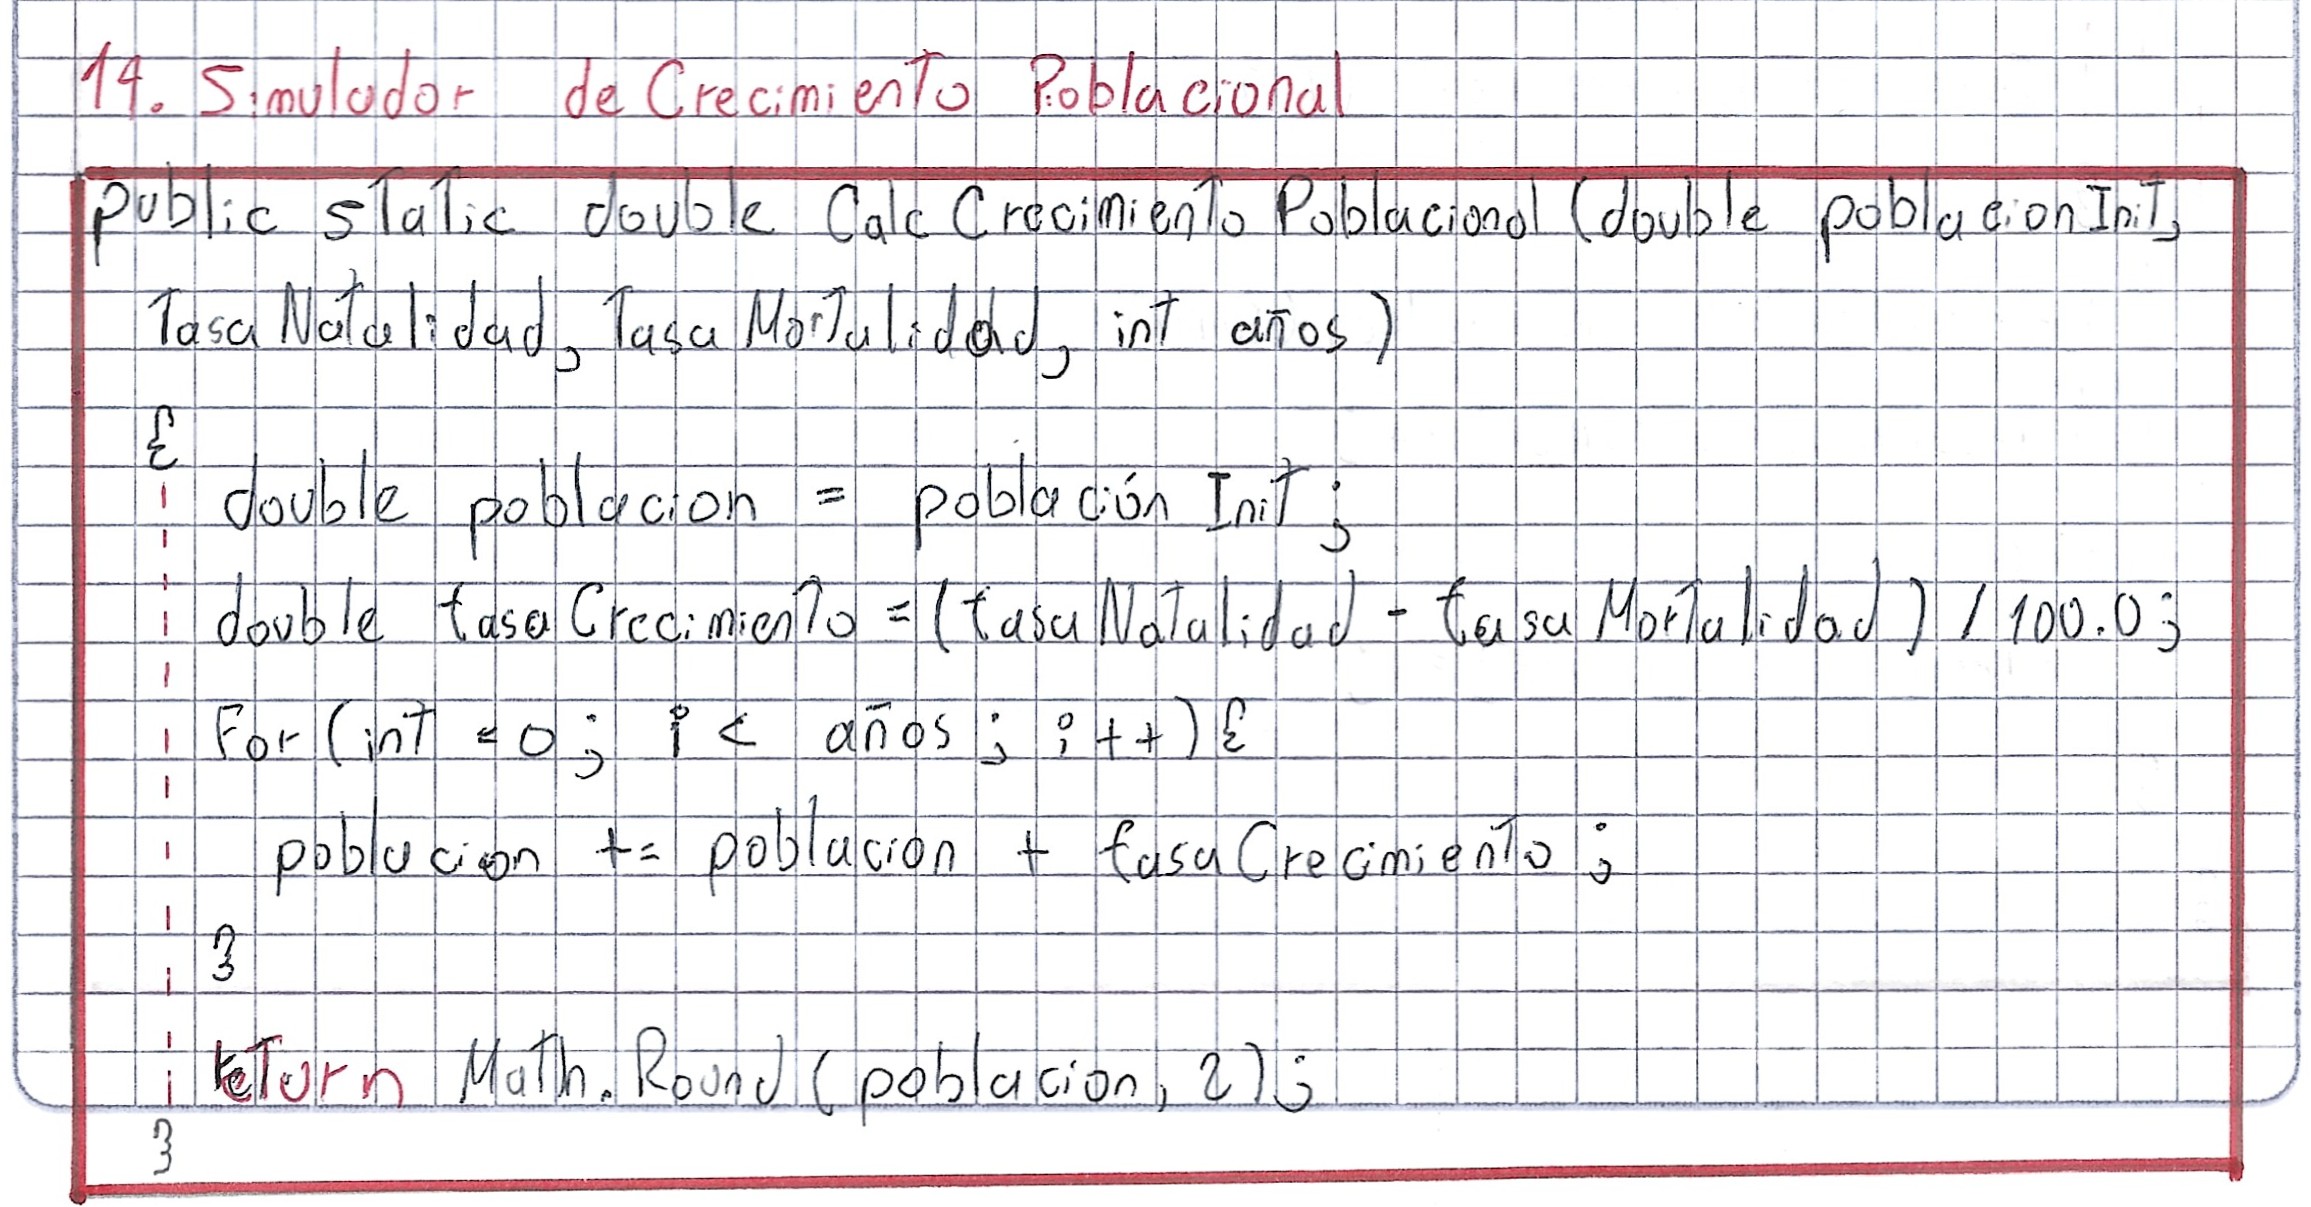 14. Simulador de Crecimiento Poblacional
public static double CalcCrecimientoPoblacional (double poblacionInit,
TasaNatalidad, TasaMortalidad, int años)
{
double poblacion = poblaciónInit;
double tasaCrecimiento = (tasaNatalidad - tasaMortalidad) / 100.0;
For (int = 0; i < años; i++) {
poblacion += poblacion + tasaCrecimiento;
}
return Math.Round (poblacion, 2);
}